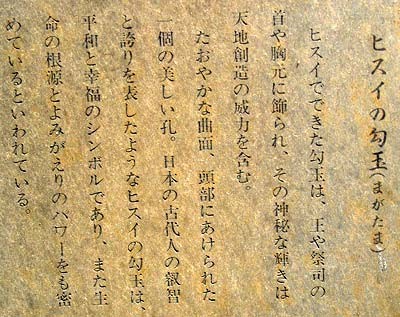 ヒスイの勾玉(まがたま)
ヒスイでできた勾玉は、王や祭司の
首や胸元に飾られ、その神秘な輝きは
天地創造の威力を含む。
たおやかな曲面、頭部にあけられた
一個の美しい孔。日本の古代人の叡智
と誇りを表したようなヒスイの勾玉は、
平和と幸福のシンボルであり、また生
命の根源とよみがえりのパワーをも密
めているといわれている。